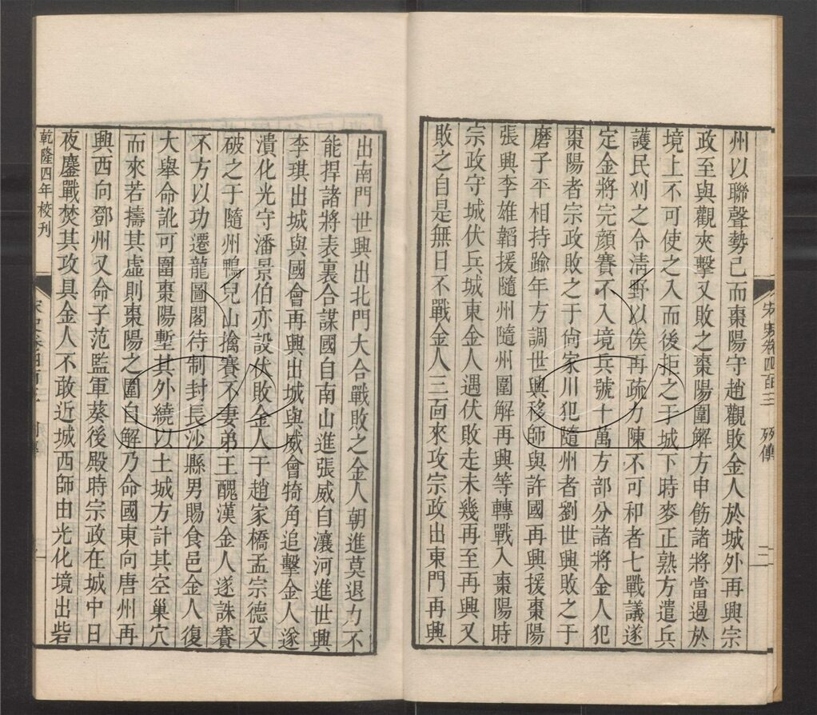 州以聯聲勢已而棗陽守趙觀敗金人於城外再興宗
政至與觀夾擊又敗之棗陽圍解方申飭諸將當遏於
境上不可使之入而後拒之于城下時麥正熟方遣兵
護民刈之令清野以俟再疏力陳不可和者七戰議遂
定金將完顔賽不入境兵號十萬方部分諸將金人犯
棗陽者宗政敗之于尙家川犯隨州者劉世興敗之于
磨子平相持踰年方調世興移師與許國再興援棗陽
張興李雄韜援隨州隨州圍解再興等轉戰入棗陽時
宗政守城伏兵城東金人遇伏敗走未幾再至再興又
敗之自是無日不戰金人三面來攻宗政出東門再興
宋史卷四百三 列傳 二
出南門世興出北門大合戰敗之金人朝進莫退力不
能捍諸將表裏合謀國自南山進張威自瀼河進世興
李琪出城與國會再興出城與威會犄角追擊金人遂
潰化光守潘景伯亦設伏敗金人于趙家橋孟宗德又
破之于隨州鴨兒山擒賽不妻弟王醜漢金人遂誅賽
不方以功遷龍圖閣待制封長沙縣男賜食邑金人復
大舉命訛可圍棗陽塹其外繞以土城方計其空巢穴
而來若擣其虛則棗陽之圍自解乃命國東向唐州再
興西向鄧州又命子范監軍葵後殿時宗政在城中日
夜鏖戰焚其攻具金人不敢近城西師由光化境出砦
乾隆四年校刊